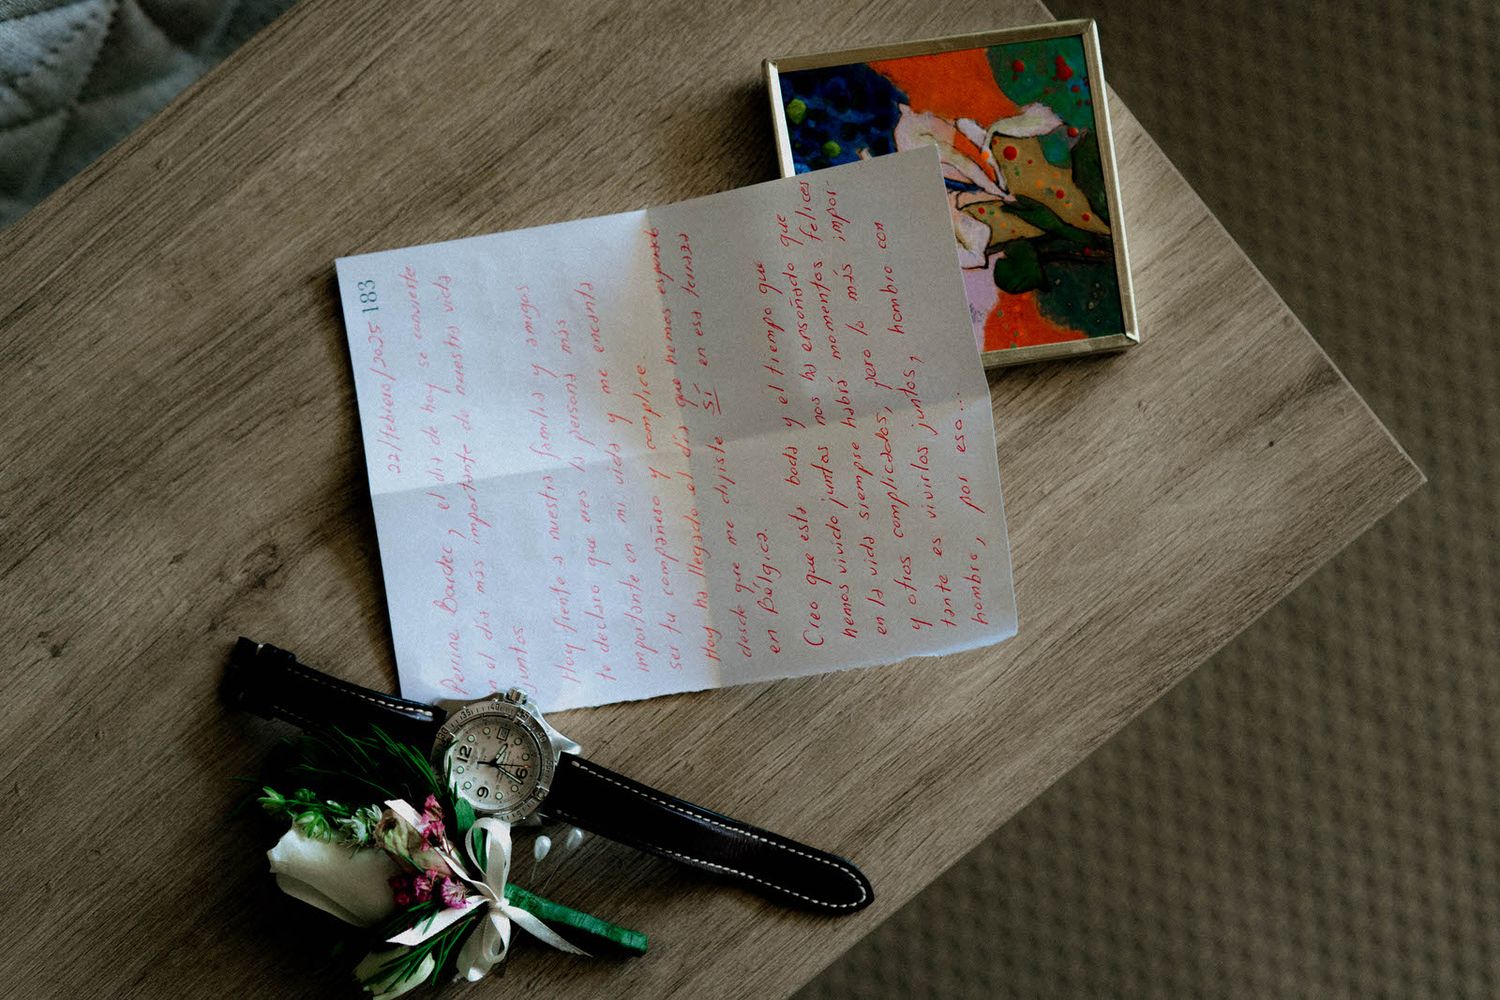 183
22/febrero/2025
Perrine Bourdec y el día de hoy se convierte
en el día más importante de nuestra vida
juntos.
Hoy frente a nuestra familia y amigos
te declaro que eres la persona más
importante en mi vida y me encanta
ser tu compañero y complice.
Hoy ha llegado el día que hemos esperado
desde que me dijiste SÍ en esa terraza
en Bélgica.
Creo que esta boda y el tiempo que
hemos vivido juntos nos ha enseñado que
en la vida siempre habrá momentos felices
y otros complicados, pero lo más impor-
tante es vivirlos juntos, hombro con
hombro, por eso...
12
6
9